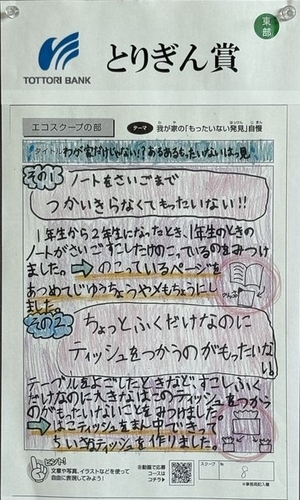 東部
TOTTORI BANK
とりぎん賞
エコスクープの部
テーマ
我が家の「もったいない発見」自慢
タイトル わが家だけじゃない!?あるあるもったいないはっ見
その1
ノートをさいごまで
つかいきらなくてもったいない!!
1年生から2年生になったとき、1年生のときの
ノートがさいごすこしだけのこっているのをみつけ
ました。➡のこっているページを
あつめてじゆうちょうやメモちょうにし
ました。
その2
ちょっとふくだけなのに
ティッシュをつかうのがもったいない
テーブルをよごしたときなど、すこしふく
だけなのに大きなはこのティッシュをつかう
のがもったいないことをみつけました。
➡はこティッシュをまん中できって
ちいさなティッシュを作りました。
ヒント!
文章や写真、イラストなどを使って
自由に表現してみよう!
※動画で応募
コースは
コチラ
スクープ
No.
8
※事務局記入欄